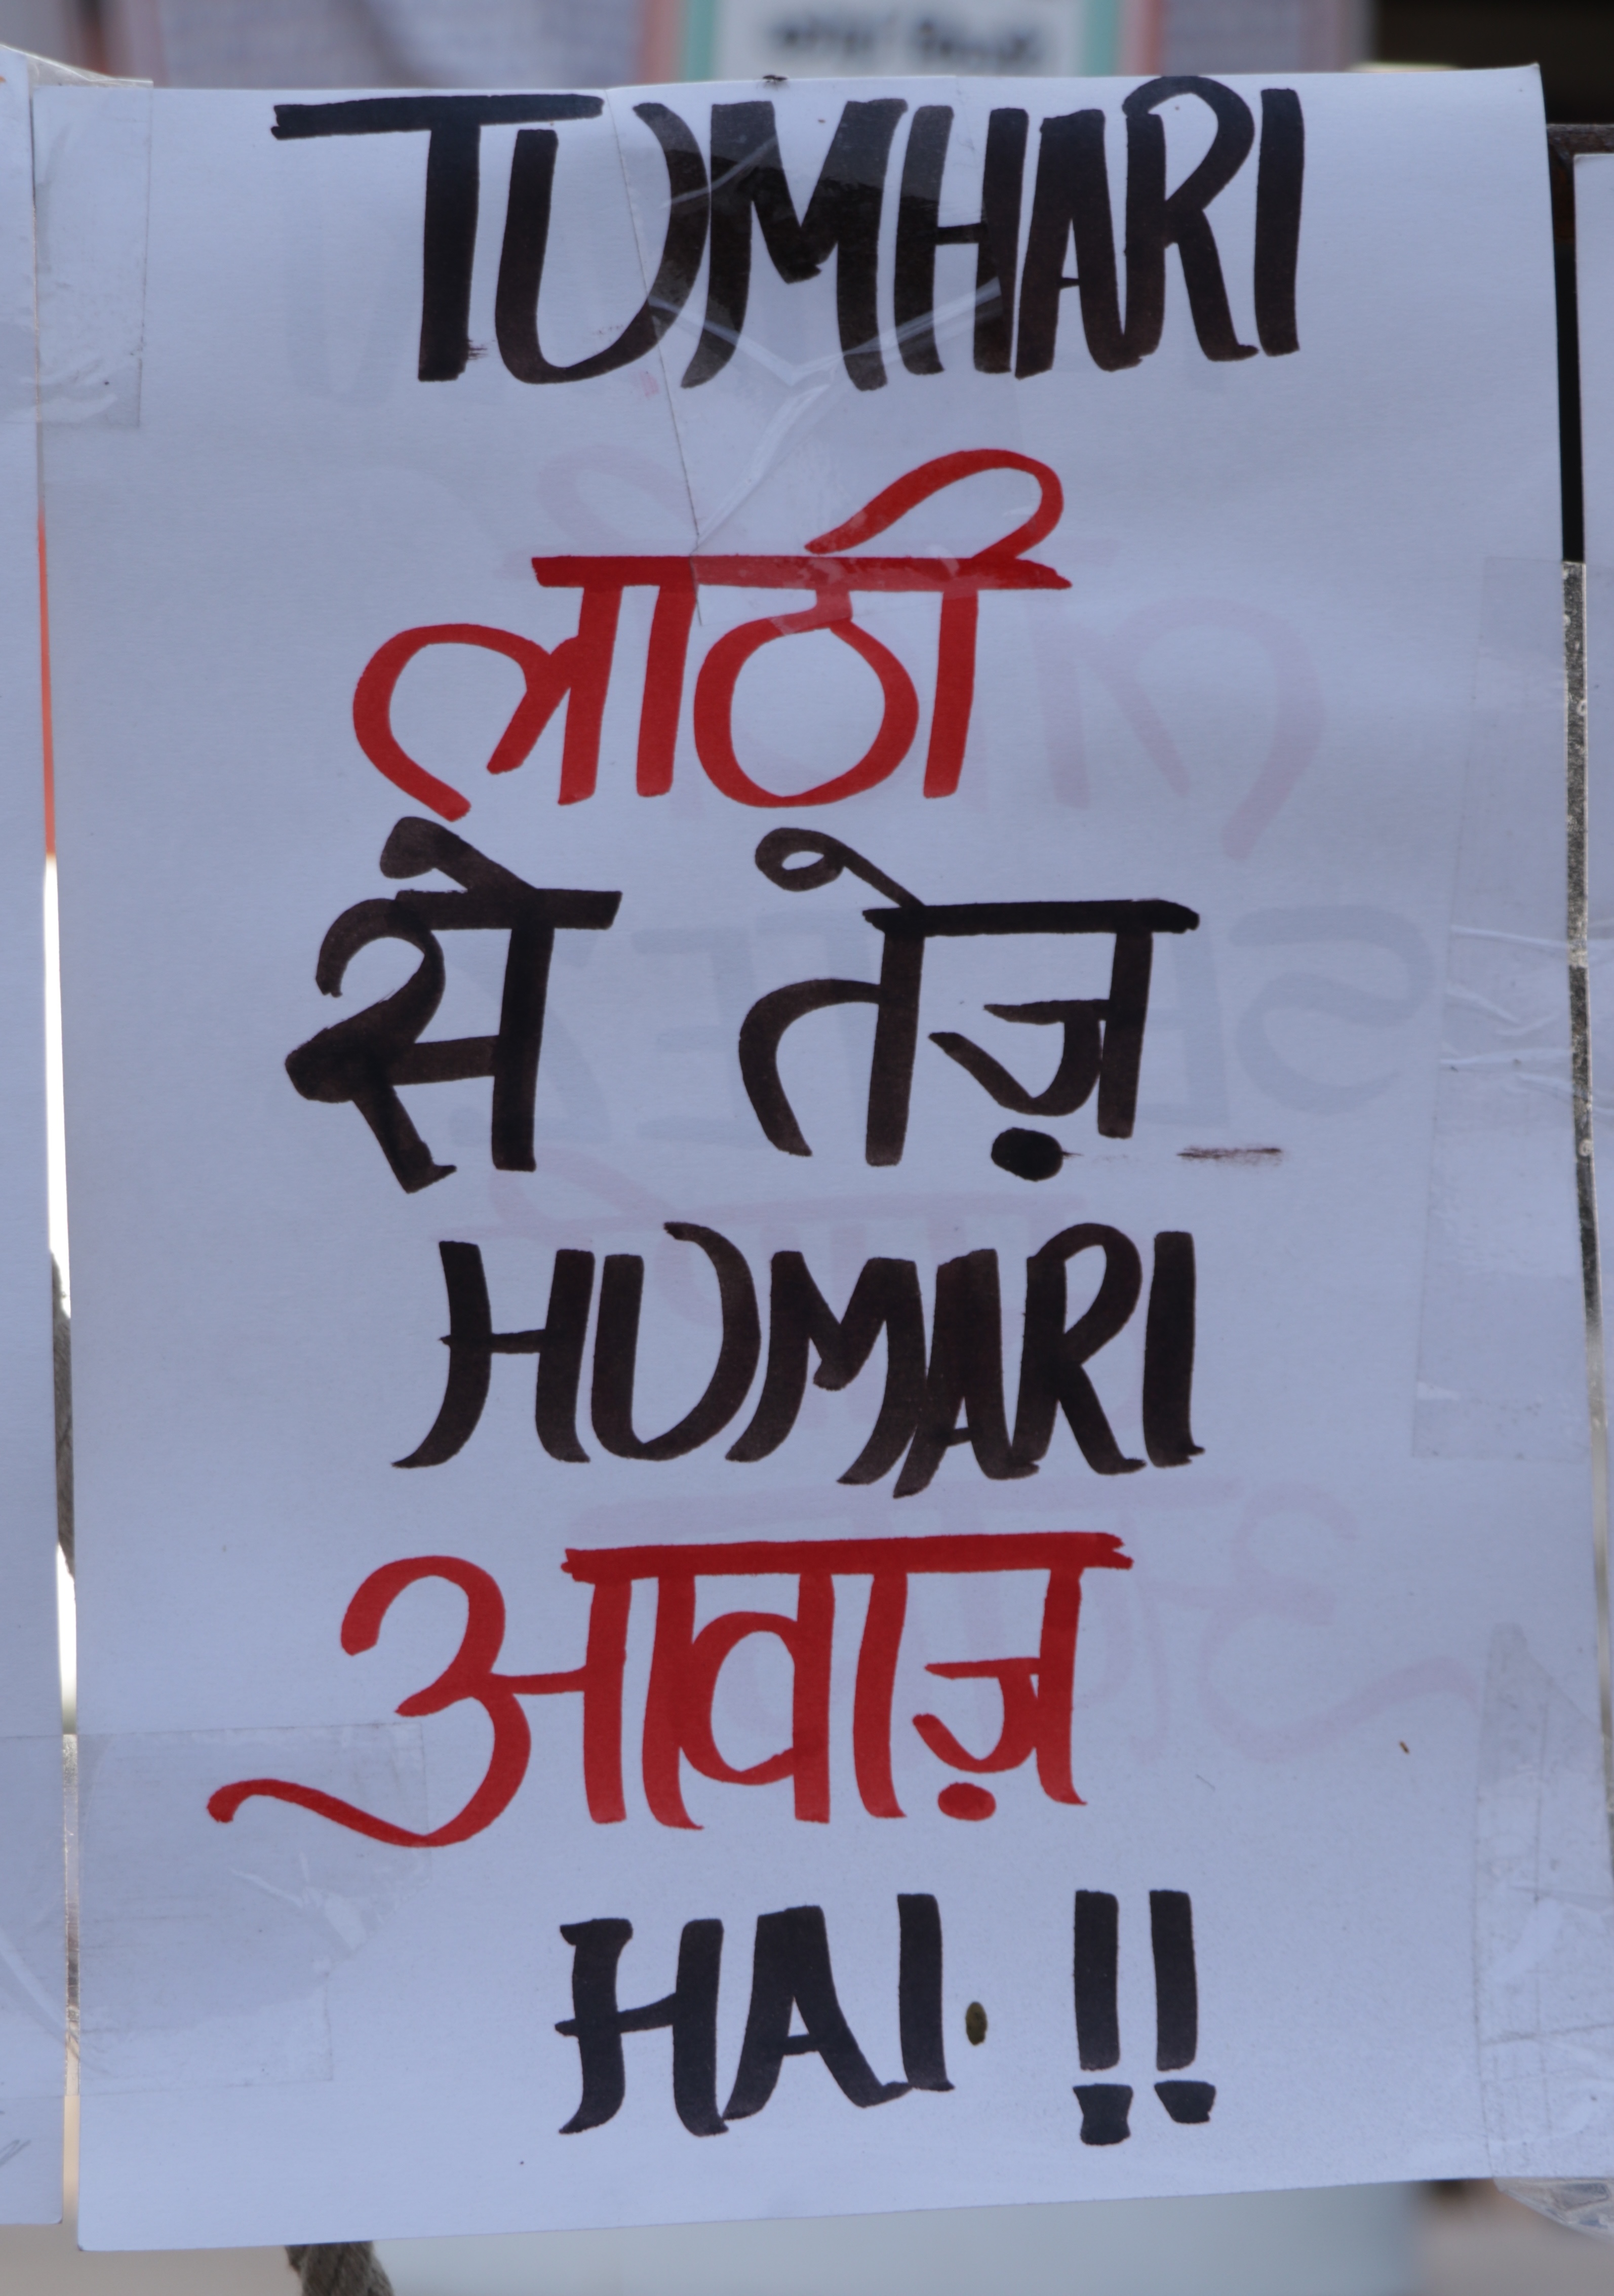 TUMHARI
लाठी
से तेज़
HUMARI
आवाज़
HAI !!